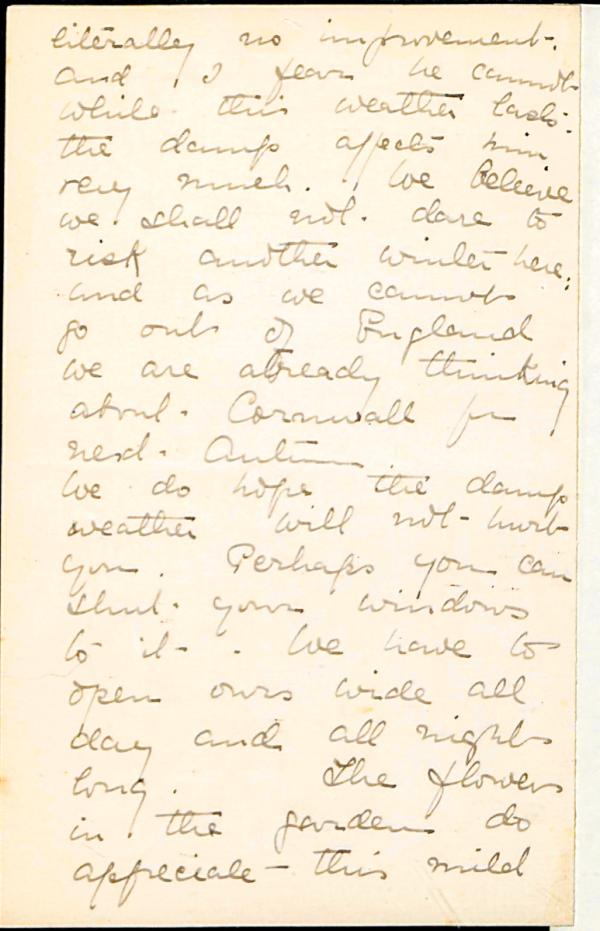 literally no improvement.
and I fear he cannot
while this weather lasts.
the damp affects him
very much. We believe
we shall not dare to
risk another winter here;
and as we cannot
go out of England
we are already thinking
about Cornwall for
next Autumn
We do hope the damp
weather will not hurt
you. Perhaps you can
shut your windows
to it. We have to
open ours wide all
day and all night
long. The flowers
in the garden do
appreciate this mild